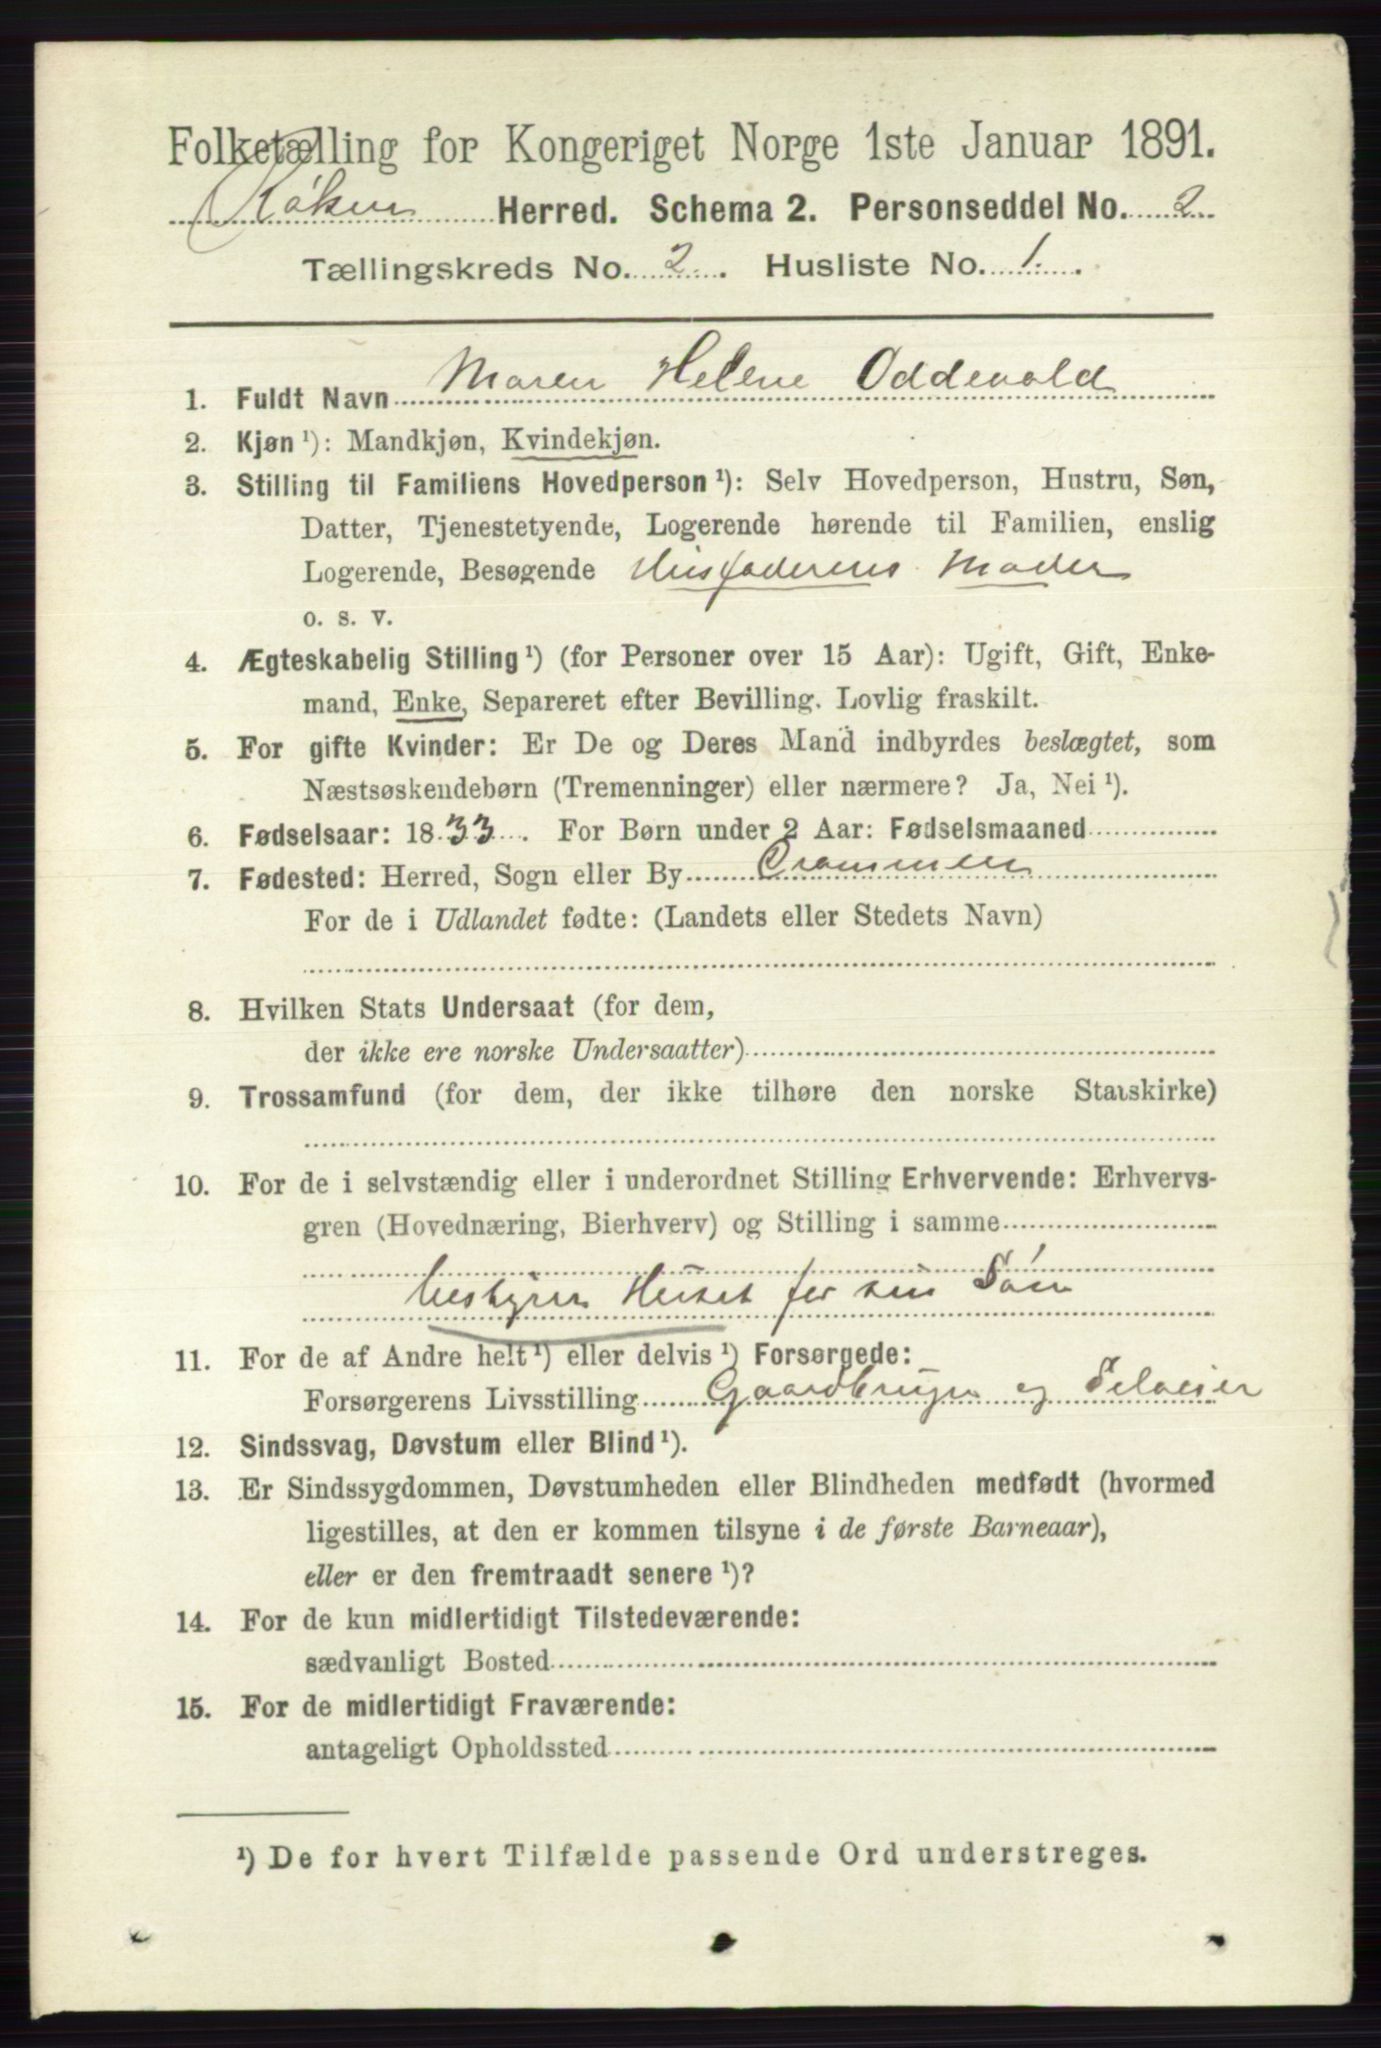 Folketælling for Kongeriget Norge 1ste Januar 1891.
Røken Herred. Schema 2. Personseddel No. 2
Tællingskreds No. 2. Husliste No. 1.
1. Fuldt Navn Maren Helene Oddevald
2. Kjøn ¹): Mandkjøn, Kvindekjøn.
3. Stilling til Familiens Hovedperson ¹): Selv Hovedperson, Hustru, Søn,
Datter, Tjenestetyende, Logerende hørende til Familien, enslig
Logerende, Besøgende Husfaderens Moder
o. s. v.
4. Ægteskabelig Stilling ¹) (for Personer over 15 Aar): Ugift, Gift, Enke-
mand, Enke, Separeret efter Bevilling. Lovlig fraskilt.
5. For gifte Kvinder: Er De og Deres Mand indbyrdes beslægtet, som
Næstsøskendebørn (Tremenninger) eller nærmere? Ja, Nei ¹).
6. Fødselsaar: 1833. For Børn under 2 Aar: Fødselsmaaned
7. Fødested: Herred, Sogn eller By Drammen
For de i Udlandet fødte: (Landets eller Stedets Navn)
8. Hvilken Stats Undersaat (for dem,
der ikke ere norske Undersaatter)
9. Trossamfund (for dem, der ikke tilhøre den norske Statskirke)
10. For de i selvstændig eller i underordnet Stilling Erhvervende: Erhvervs-
gren (Hovednæring, Bierhverv) og Stilling i samme
bestyrer Huset for sin Søn
11. For de af Andre helt ¹) eller delvis ¹) Forsørgede:
Forsørgerens Livsstilling Gaardbruger og Selveier
12. Sindssvag, Døvstum eller Blind ¹).
13. Er Sindssygdommen, Døvstumheden eller Blindheden medfødt (hvormed
ligestilles, at den er kommen tilsyne i de første Barneaar),
eller er den fremtraadt senere ¹)?
14. For de kun midlertidigt Tilstedeværende:
sædvanligt Bosted
15. For de midlertidigt Fraværende:
antageligt Opholdssted
¹) De for hvert Tilfælde passende Ord understreges.